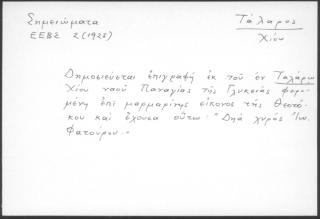 Σημειώματα
Τάλαρος
ΕΕΒΣ 2 (1925)
Χίου
Δημοσιεύεται ἐπιγραφὴ ἐκ τοῦ ἐν Ταλάρῳ
Χίου ναοῦ Παναγίας τῆς Γλυκειᾶς φερο-
μένη ἐπὶ μαρμαρίνης εἰκόνος τῆς Θεοτό-
κου καὶ ἔχουσα οὕτω: "Διὰ χειρὸς Ἰω.
Φατούρου.-